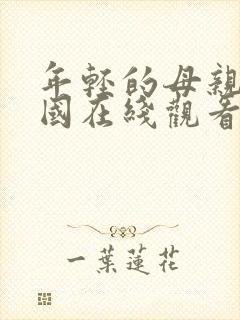 年輕的母親
國在綫觀看
一葉蓮花